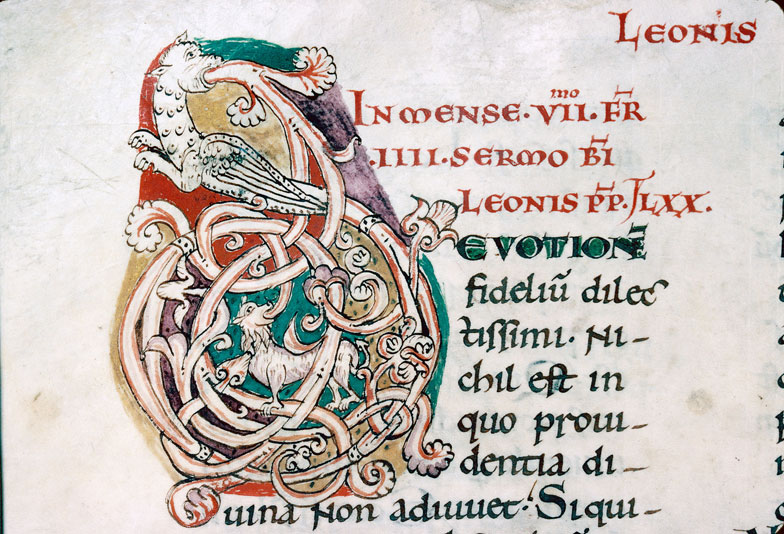 Leonis
IN MENSE · VII mo · FR
· IIII · SERMO BI
LEONIS PP. LXX.
DEVOTIONE
fideliū dilec
tissimi. Ni-
chil est in
quo proui-
dentia di-
uina non adiuuet. Siqui-